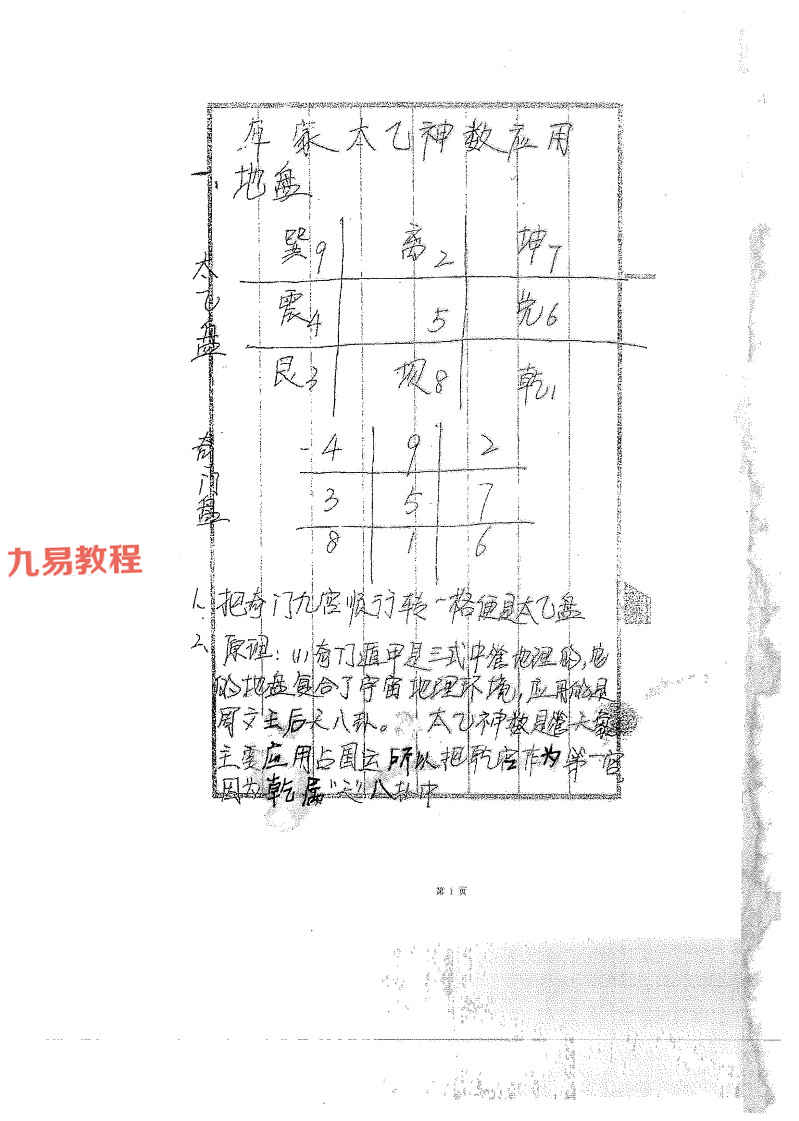 库家太乙神数应用
一、地盘
太乙盘
巽9 离2 坤7
震4 5 兑6
艮3 坝8 乾1
奇门盘
4 9 2
3 5 7
8 1 6
九易教程
1、把奇门九宫顺行转一格便是太乙盘
2、原理：(1)奇门遁甲是三式中管地理的，它
的地盘复合了宇宙地理环境，应用的是
周文王后天八卦。太乙神数是管天
主要应用占国运所以把乾宫作为第一宫
因为乾属 八卦中
第1页